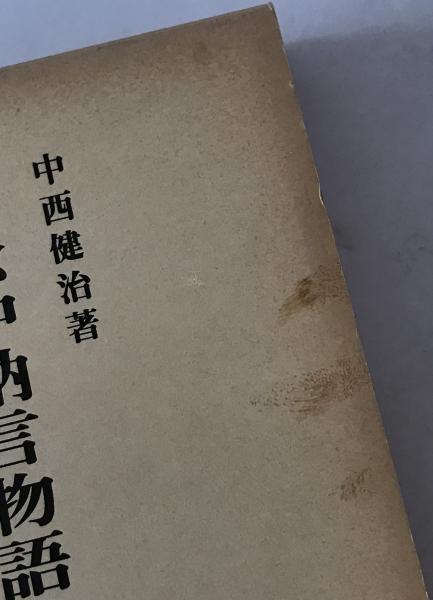 中西健治著
納言物語